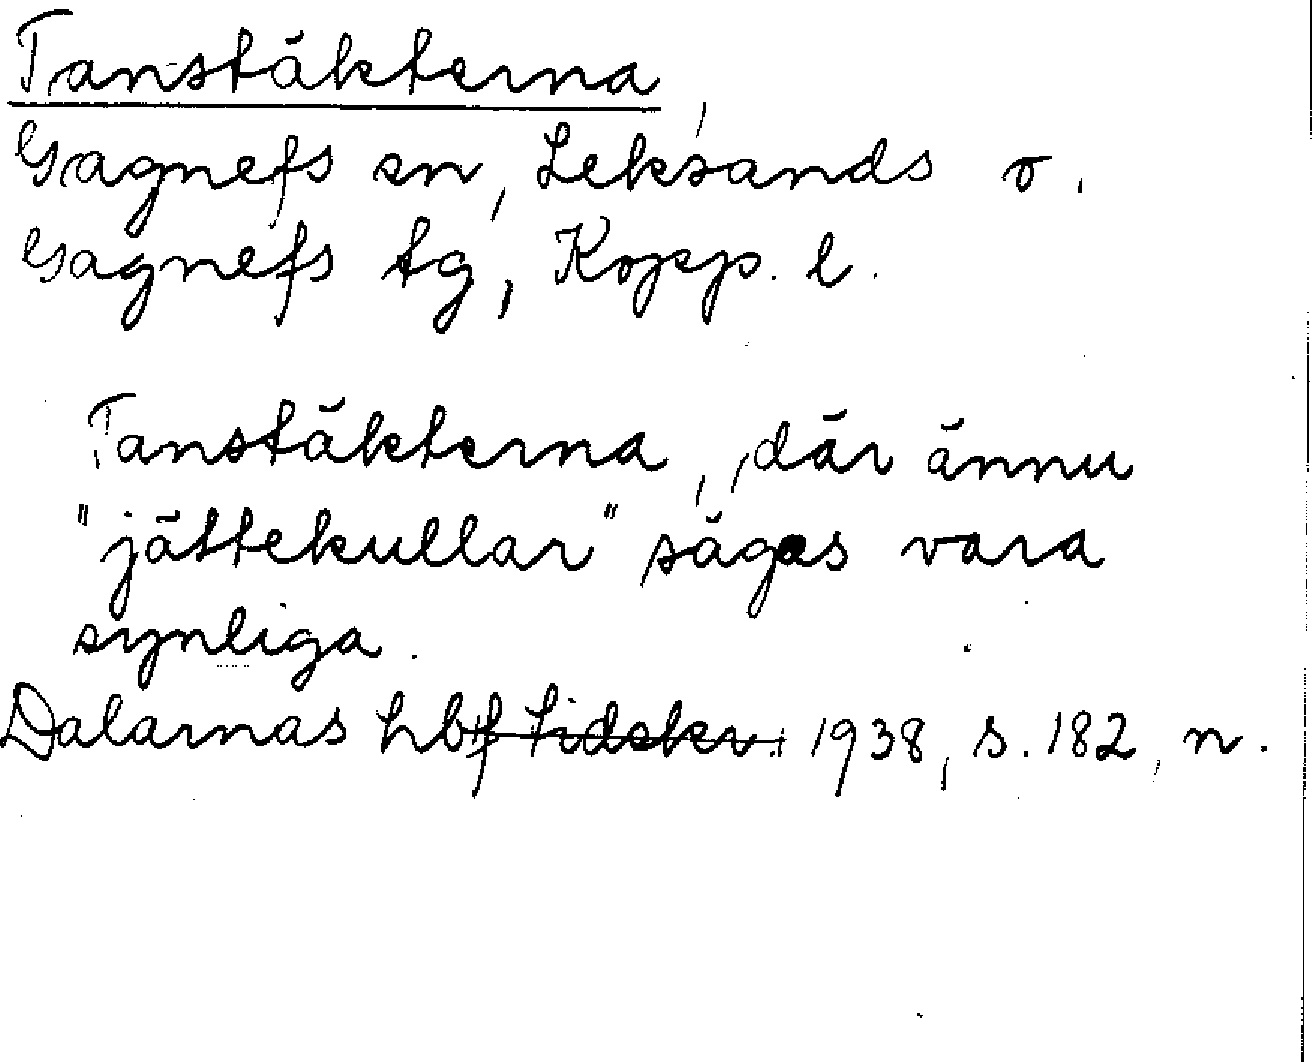 Tanstäkterna,
Gagnefs sn, Leksands o.
Gagnefs tg, Kopp. l.
Tanstäkterna, där ännu
"jättekullar" sägas vara
synliga.
Dalarnas hbf tidskr. 1938, s. 182, n.